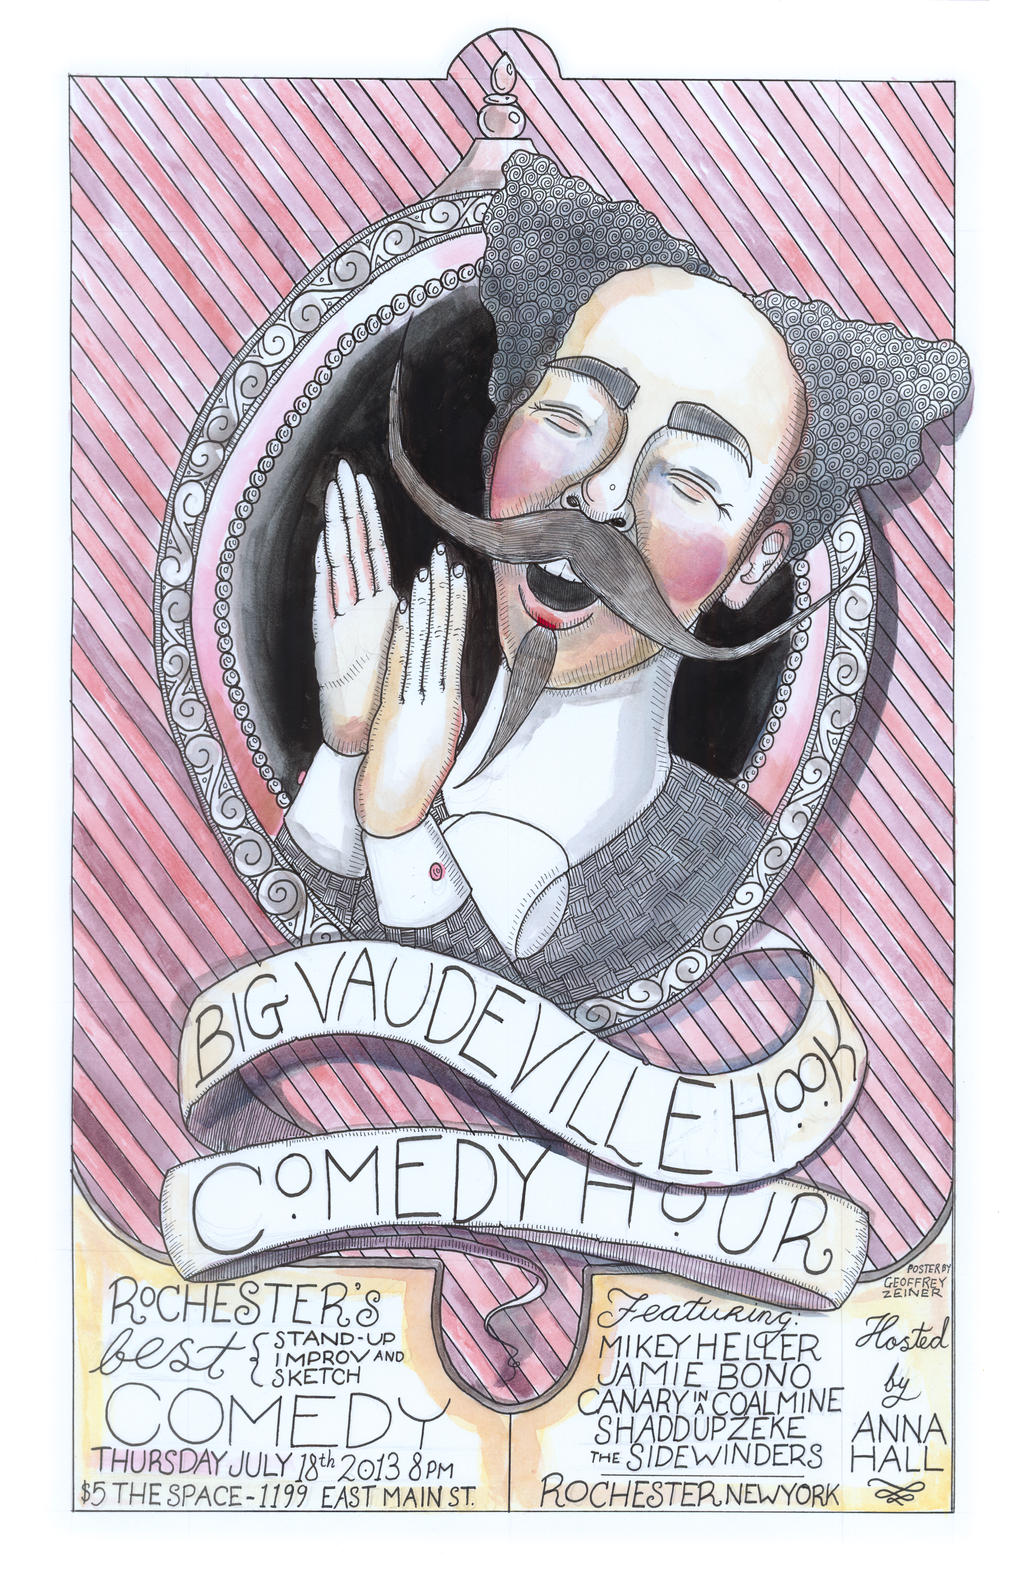 BIG VAUDEVILLE HOOK
COMEDY HOUR
ROCHESTER'S
best { STAND-UP
IMPROV AND
SKETCH
COMEDY
THURSDAY JULY 18th 2013 8PM
$5 THE SPACE - 1199 EAST MAIN ST.
Featuring:
MIKEY HELLER
JAMIE BONO
CANARY IN A COALMINE
SHADDUPZEKE
THE SIDEWINDERS
ROCHESTER NEW YORK
POSTER BY
GEOFFREY
ZEINER
Hosted
by
ANNA
HALL